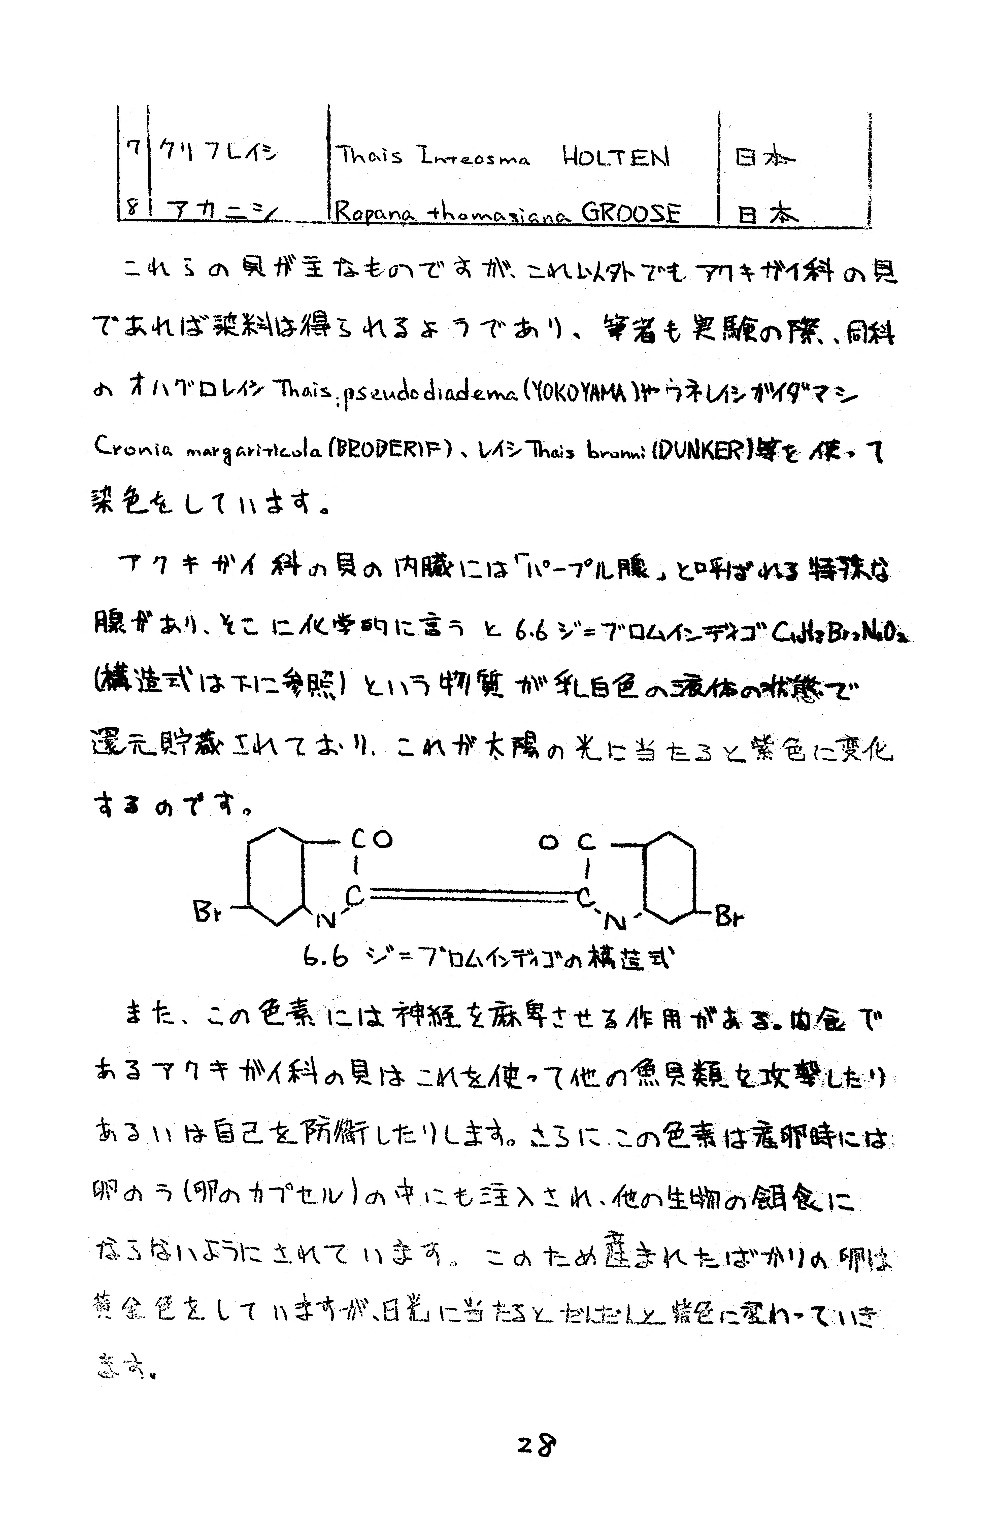 7 クリフレイシ Thais Inteosma HOLTEN 日本
8 アカニシ Rapana thomasiana GROOSE 日本
これらの貝が主なものですが、これ以外でもアクキガイ科の貝
であれば染料は得られるようであり、筆者も実験の際、同科
のオハグロレイシ Thais pseudodiadema (YOKOYAMA)やウネレイシガイダマシ
Cronia margariticola (BRODERIF)、レイシ Thais bronni (DUNKER)等を使って
染色をしています。
アクキガイ科の貝の内臓には「パープル腺」と呼ばれる特殊な
腺があり、そこに化学的に言うと 6.6 ジ=ブロムインディゴ C₁₆H₈Br₂N₂O₂
(構造式は下に参照)という物質が乳白色の液体の状態で
還元貯蔵されており、これが太陽の光に当たると紫色に変化
するのです。
CO OC
Br N C C N Br
6.6 ジ=ブロムインディゴの構造式
また、この色素には神経を麻卑させる作用がある。肉食で
あるアクキガイ科の貝はこれを使って他の魚貝類を攻撃したり
あるいは自己を防衛したりします。さらにこの色素は産卵時には
卵のう(卵のカプセル)の中にも注入され、他の生物の餌食に
ならないようにされています。このため産まれたばかりの卵は
黄金色をしていますが、日光に当たるとだんだんと紫色に変わっていき
ます。
28